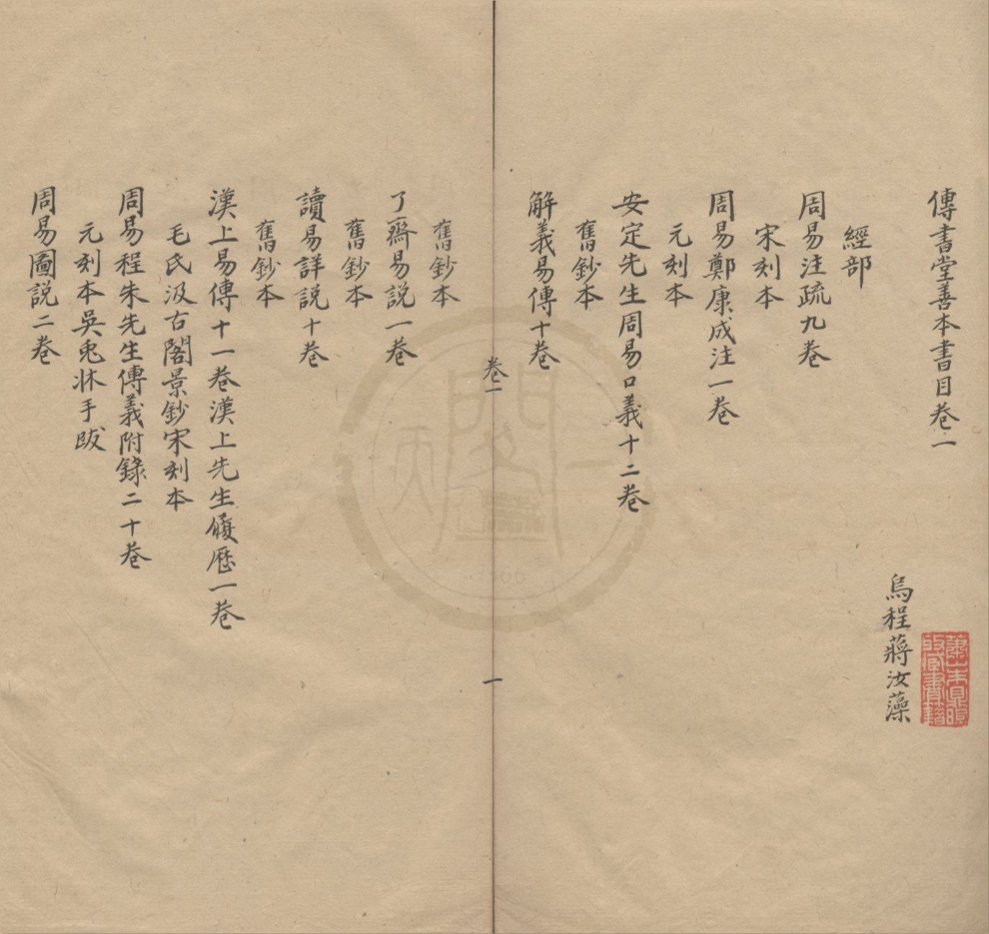 傳書堂善本書目卷一
烏程蔣汝藻
經部
周易注疏九卷
宋刻本
周易鄭康成注一卷
元刻本
安定先生周易口義十二卷
舊鈔本
解義易傳十卷
卷一
一
舊鈔本
了齋易說一卷
舊鈔本
讀易詳說十卷
舊鈔本
漢上易傳十一卷漢上先生履歷一卷
毛氏汲古閣景鈔宋刻本
周易程朱先生傳義附錄二十卷
元刻本吳兎牀手跋
周易圖說二卷